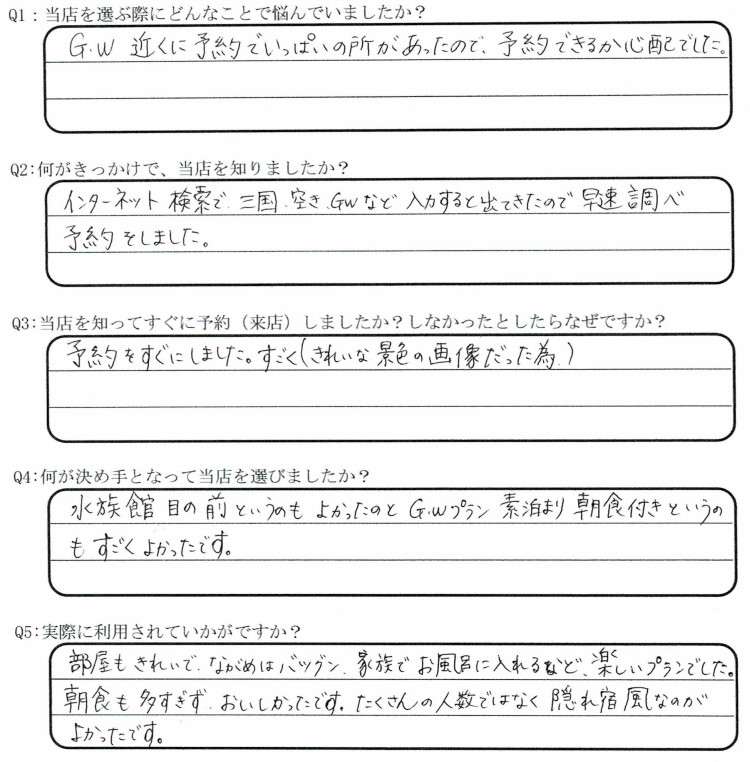 Q1：当店を選ぶ際にどんなことで悩んでいましたか？
G.W 近くに予約でいっぱいの所があったので、予約できるか心配でした。
Q2：何がきっかけで、当店を知りましたか？
インターネット検索で、三国、空き、GWなど入力すると出てきたので早速調べ
予約をしました。
Q3：当店を知ってすぐに予約（来店）しましたか？しなかったとしたらなぜですか？
予約をすぐにしました。すごく(きれいな景色の画像だった為)
Q4：何が決め手となって当店を選びましたか？
水族館目の前というのもよかったのとG.Wプラン素泊まり朝食付きというの
もすごくよかったです。
Q5：実際に利用されていかがですか？
部屋もきれいで、ながめはバツグン、家族でお風呂に入れるなど、楽しいプランでした。
朝食も多すぎず、おいしかったです。たくさんの人数ではなく隠れ宿風なのが
よかったです。